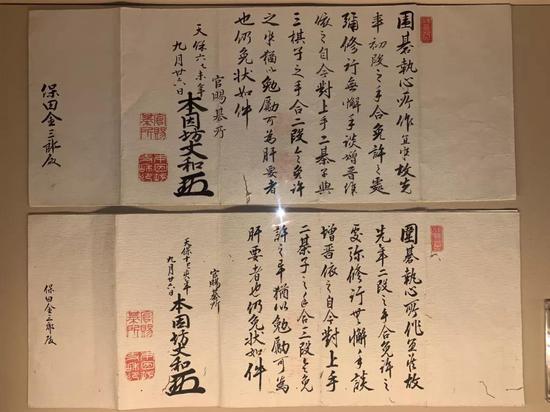 圍碁執心所作宜故先
年初段之手合免許之處
彌修行無懈手談増晋
依之自今對上手二碁子與
三棋子之手合二段令免許
之畢猶以勉勵可為肝要者
也仍免状如件
官賜碁所
天保六乙未年
九月廿六日
本因坊丈和
保田金三郎殿
圍碁執心所作宜故
先年二段之手合免許之
處弥修行無懈手談
増晋依之自今對上手
二棊子之手合三段令免
許之畢猶以勉勵可為
肝要者也仍免状如件
官賜碁所
天保十年
九月六日
本因坊丈和
保田金三郎殿